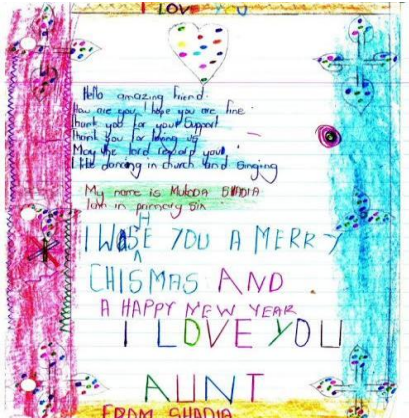 I LOVE YOU
Hello amazing friend.
How are you I hope you are fine.
Thank you for your Support
Thank you for loving us
May the lord reword you
I like dancing in church and Singing
My name is MuloDA SHADIA
Iam in primary Six
I WASHE YOU A MERRY
CHISMAS AND
A HAPPY NEW YEAR
I LOVE YOU
AUNT
FROM SHADIA